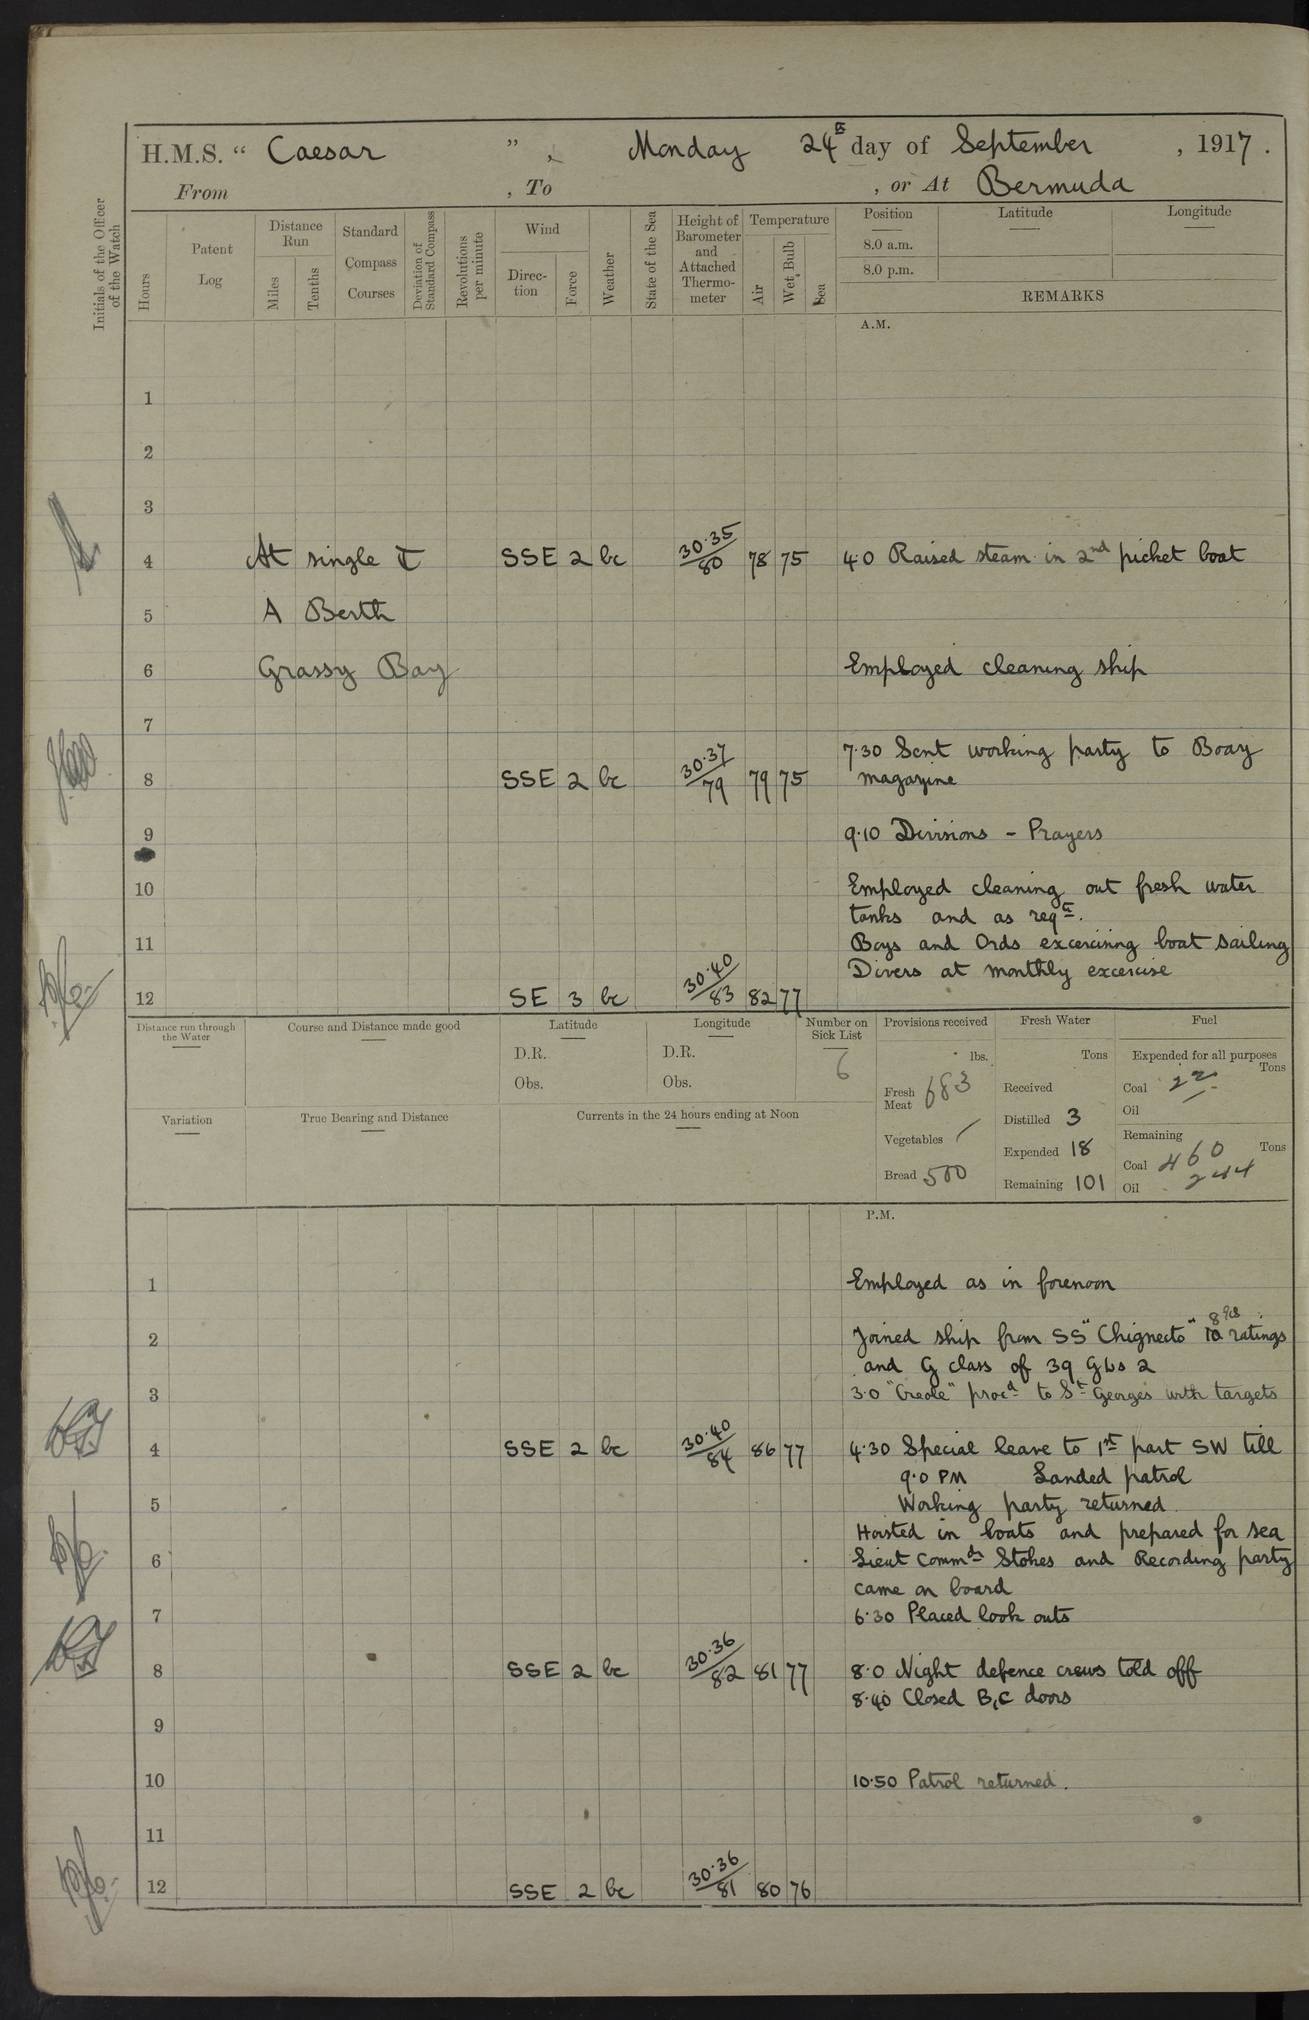 H.M.S. “ Caesar ” , Monday 24th day of September , 1917 .
From , To , or At Bermuda
Initials of the Officer of the Watch
Hours
Patent Log
Distance Run
Miles
Tenths
Standard Compass Courses
Deviation of Standard Compass
Revolutions per minute
Wind
Direc-tion
Force
Weather
State of the Sea
Height of Barometer and Attached Thermo-meter
Temperature
Air
Wet Bulb
Sea
Position
8.0 a.m.
8.0 p.m.
Latitude
Longitude
REMARKS
A.M.
1
2
3
4 At single SSE 2 bc 30.35/80 78 75 4.0 Raised steam in 2nd picket boat
5 A Berth
6 Grassy Bay Employed cleaning ship
7
7.30 Sent working party to Boaz
8 SSE 2 bc 30.37/79 79 75 magazine
9 9.10 Divisions - Prayers
10 Employed cleaning out fresh water
tanks and as reqd.
11 Boys and Ords excercising boat sailing
Divers at monthly excercise
12 SE 3 bc 30.40/83 82 77
Distance run through the Water
Course and Distance made good
Latitude
D.R.
Obs.
Longitude
D.R.
Obs.
Number on Sick List
6
Provisions received
lbs.
Fresh Meat 683
Vegetables /
Bread 500
Fresh Water
Tons
Received
Distilled 3
Expended 18
Remaining 101
Fuel
Expended for all purposes
Tons
Coal 22
Oil
Remaining
Tons
Coal 460
Oil 244
Variation
True Bearing and Distance
Currents in the 24 hours ending at Noon
P.M.
1 Employed as in forenoon
2 Joined ship from SS "Chignecto" 8 ratings
and G class of 39 2
3 3.0 "Creole" procd to St Georges with targets
4 SSE 2 bc 30.40/84 86 77 4.30 Special leave to 1st part SW till
9.0 PM Landed patrol
5 Working party returned.
Hoisted in boats and prepared for sea
6 Lieut Commdr Stokes and Recording party
came on board
7 6.30 Placed look outs
8 SSE 2 bc 30.36/82 81 77 8.0 Night defence crews told off
8.40 Closed B,C doors
9
10 10.50 Patrol returned.
11
12 SSE 2 bc 30.36/81 80 76